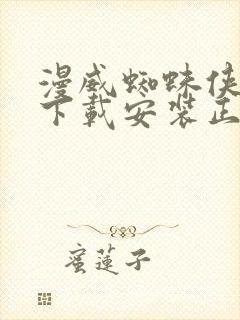 漫威蜘蛛侠
下载安装正
蜜莲子